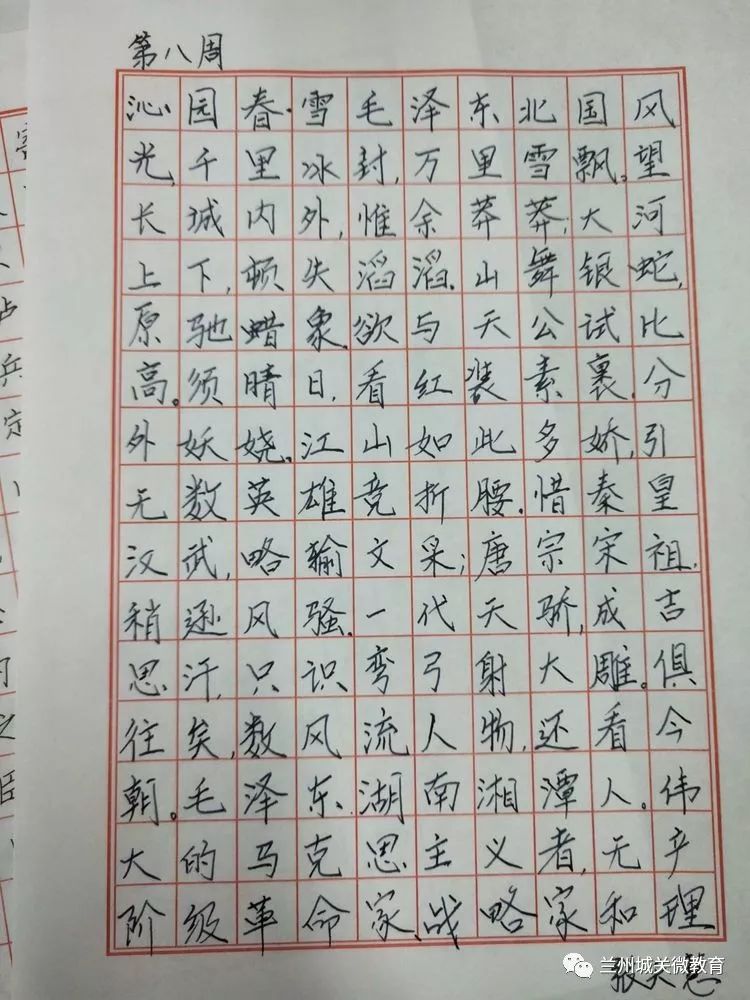 第八周
沁园春·雪毛泽东北国风
光,千里冰封,万里雪飘。望
长城内外,惟余莽莽;大河
上下,顿失滔滔.山舞银蛇,
原驰蜡象.欲与天公试比
高。须晴日,看红装素裹.分
外妖娆.江山如此多娇,引
无数英雄竞折腰.惜秦皇
汉武,略输文采;唐宗宋祖.
稍逊风骚.一代天骄,成吉
思汗,只识弯弓射大雕。俱
往矣,数风流人物,还看今
朝。毛泽东.湖南湘潭人。伟
大的马克思主义者,无产
阶级革命家、战略家和理
兰州城关微教育